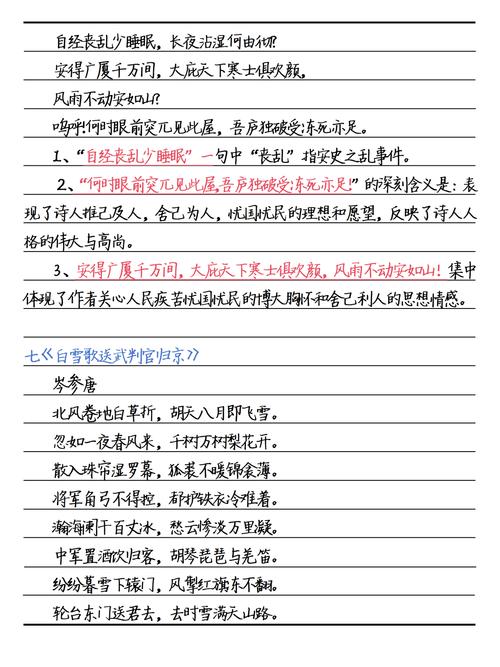 自经丧乱少睡眠，长夜沾湿何由彻?
安得广厦千万间，大庇天下寒士俱欢颜，
风雨不动安如山?
呜呼!何时眼前突兀见此屋，吾庐独破受冻死亦足。
1、“自经丧乱少睡眠”一句中“丧乱”指安史之乱事件。
2、“何时眼前突兀见此屋,吾庐独破受冻死亦足!”的深刻含义是：表
现了诗人推己及人，舍己为人，忧国忧民的理想和愿望，反映了诗人人
格的伟大与高尚。
3、安得广厦千万间，大庇天下寒士俱欢颜，风雨不动安如山！集中
体现了作者关心人民疾苦忧国忧民的博大胸怀和舍己利人的思想情感。
七《白雪歌送武判官归京》
岑参唐
北风卷地白草折，胡天八月即飞雪。
忽如一夜春风来，千树万树梨花开。
散入珠帘湿罗幕，狐裘不暖锦衾薄。
将军角弓不得控，都护铁衣冷难着。
瀚海阑干百丈冰，愁云惨淡万里凝。
中军置酒饮归客，胡琴琵琶与羌笛。
纷纷暮雪下辕门，风掣红旗冻不翻。
轮台东门送君去，去时雪满天山路。